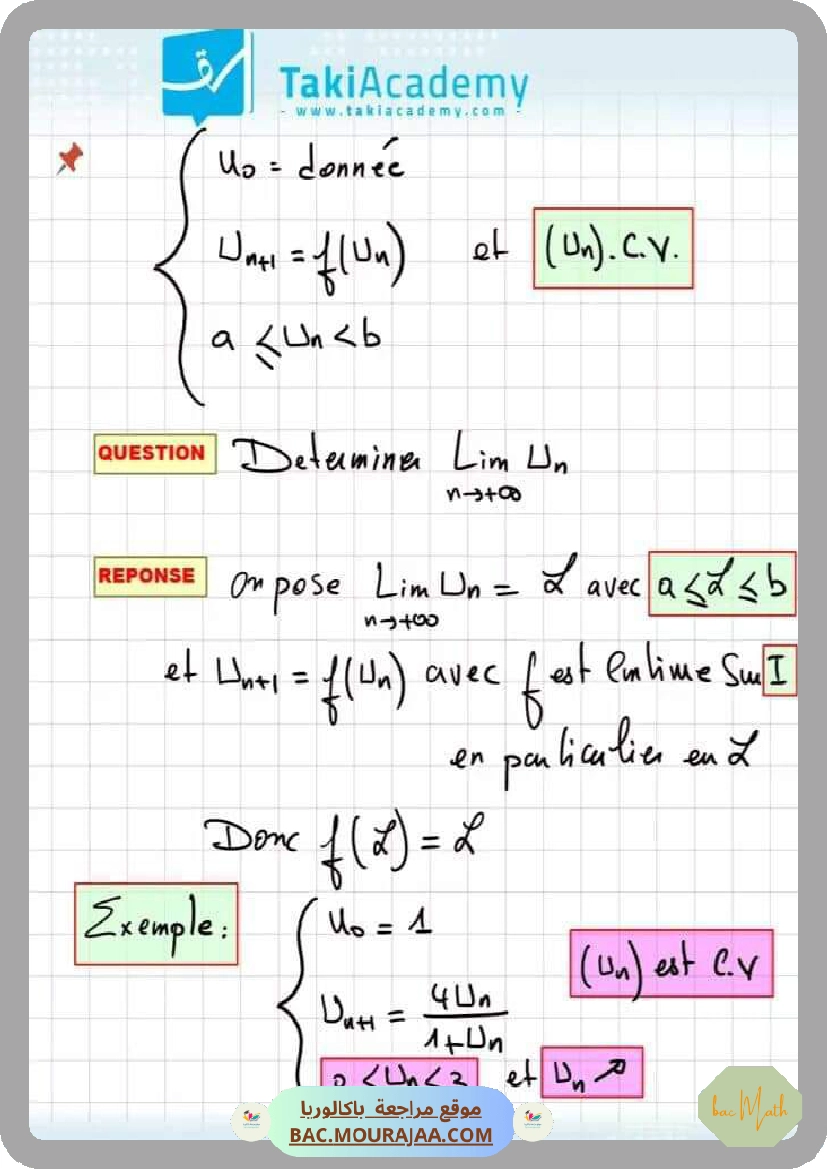 TakiAcademy
- www.takiacademy.com -
U₀ = donnée
Uₙ₊₁ = f(Uₙ) et (Uₙ). C.V.
a ≤ Uₙ < b
QUESTION Determiner Lim Uₙ
n→+∞
REPONSE on pose Lim Uₙ = L avec a ≤ L ≤ b
n→+∞
et Uₙ₊₁ = f(Uₙ) avec f est Continue Sur I
en particulier en L
Donc f(L) = L
Exemple:
U₀ = 1
(Uₙ) est C.V
Uₙ₊₁ = 4Uₙ / 1+Uₙ
0 < Uₙ < 3 et Uₙ ↗
موقع مراجعة باكالوريا
BAC.MOURAJAA.COM
bac Math